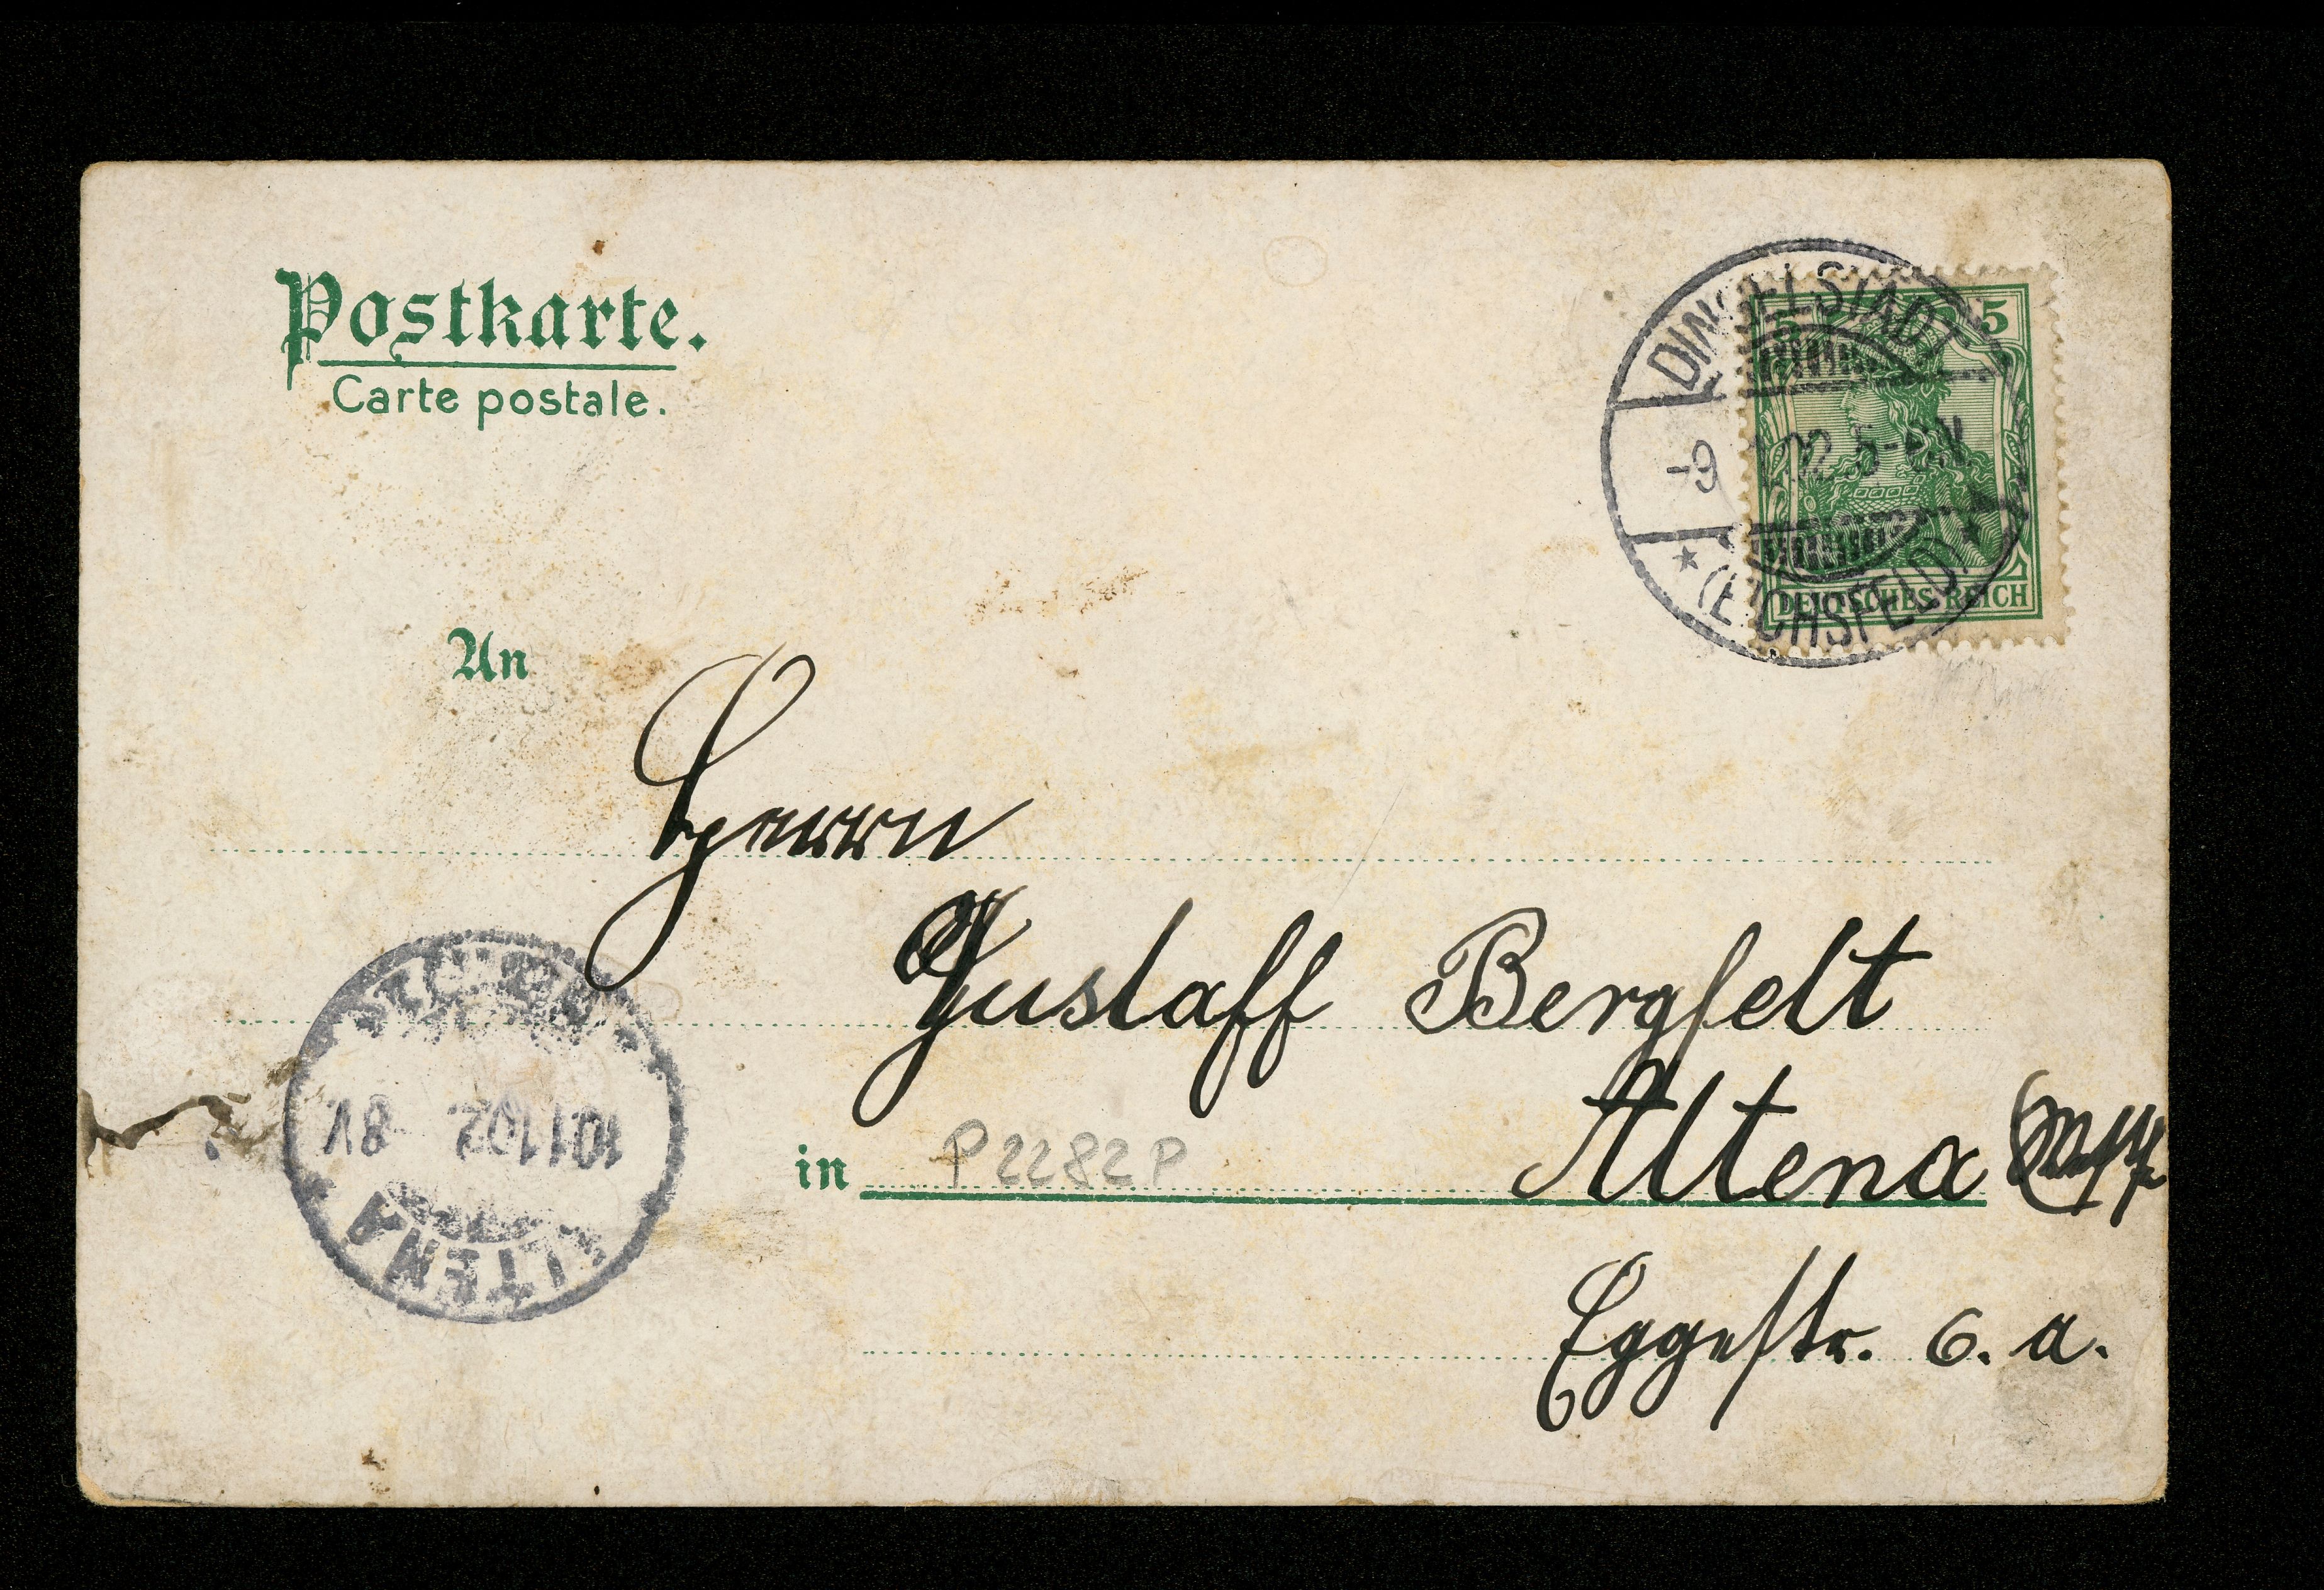 Postkarte.
Carte postale.
DINGELSTÄDT
5
-9 02 5-6N
* (EICHSFELD) *
DEUTSCHES REICH
An
Herrn
Gustaff Bergfelt
in P2282P Altena
Eggestr. 6. a.
10.11.02. 8V
ALTENA